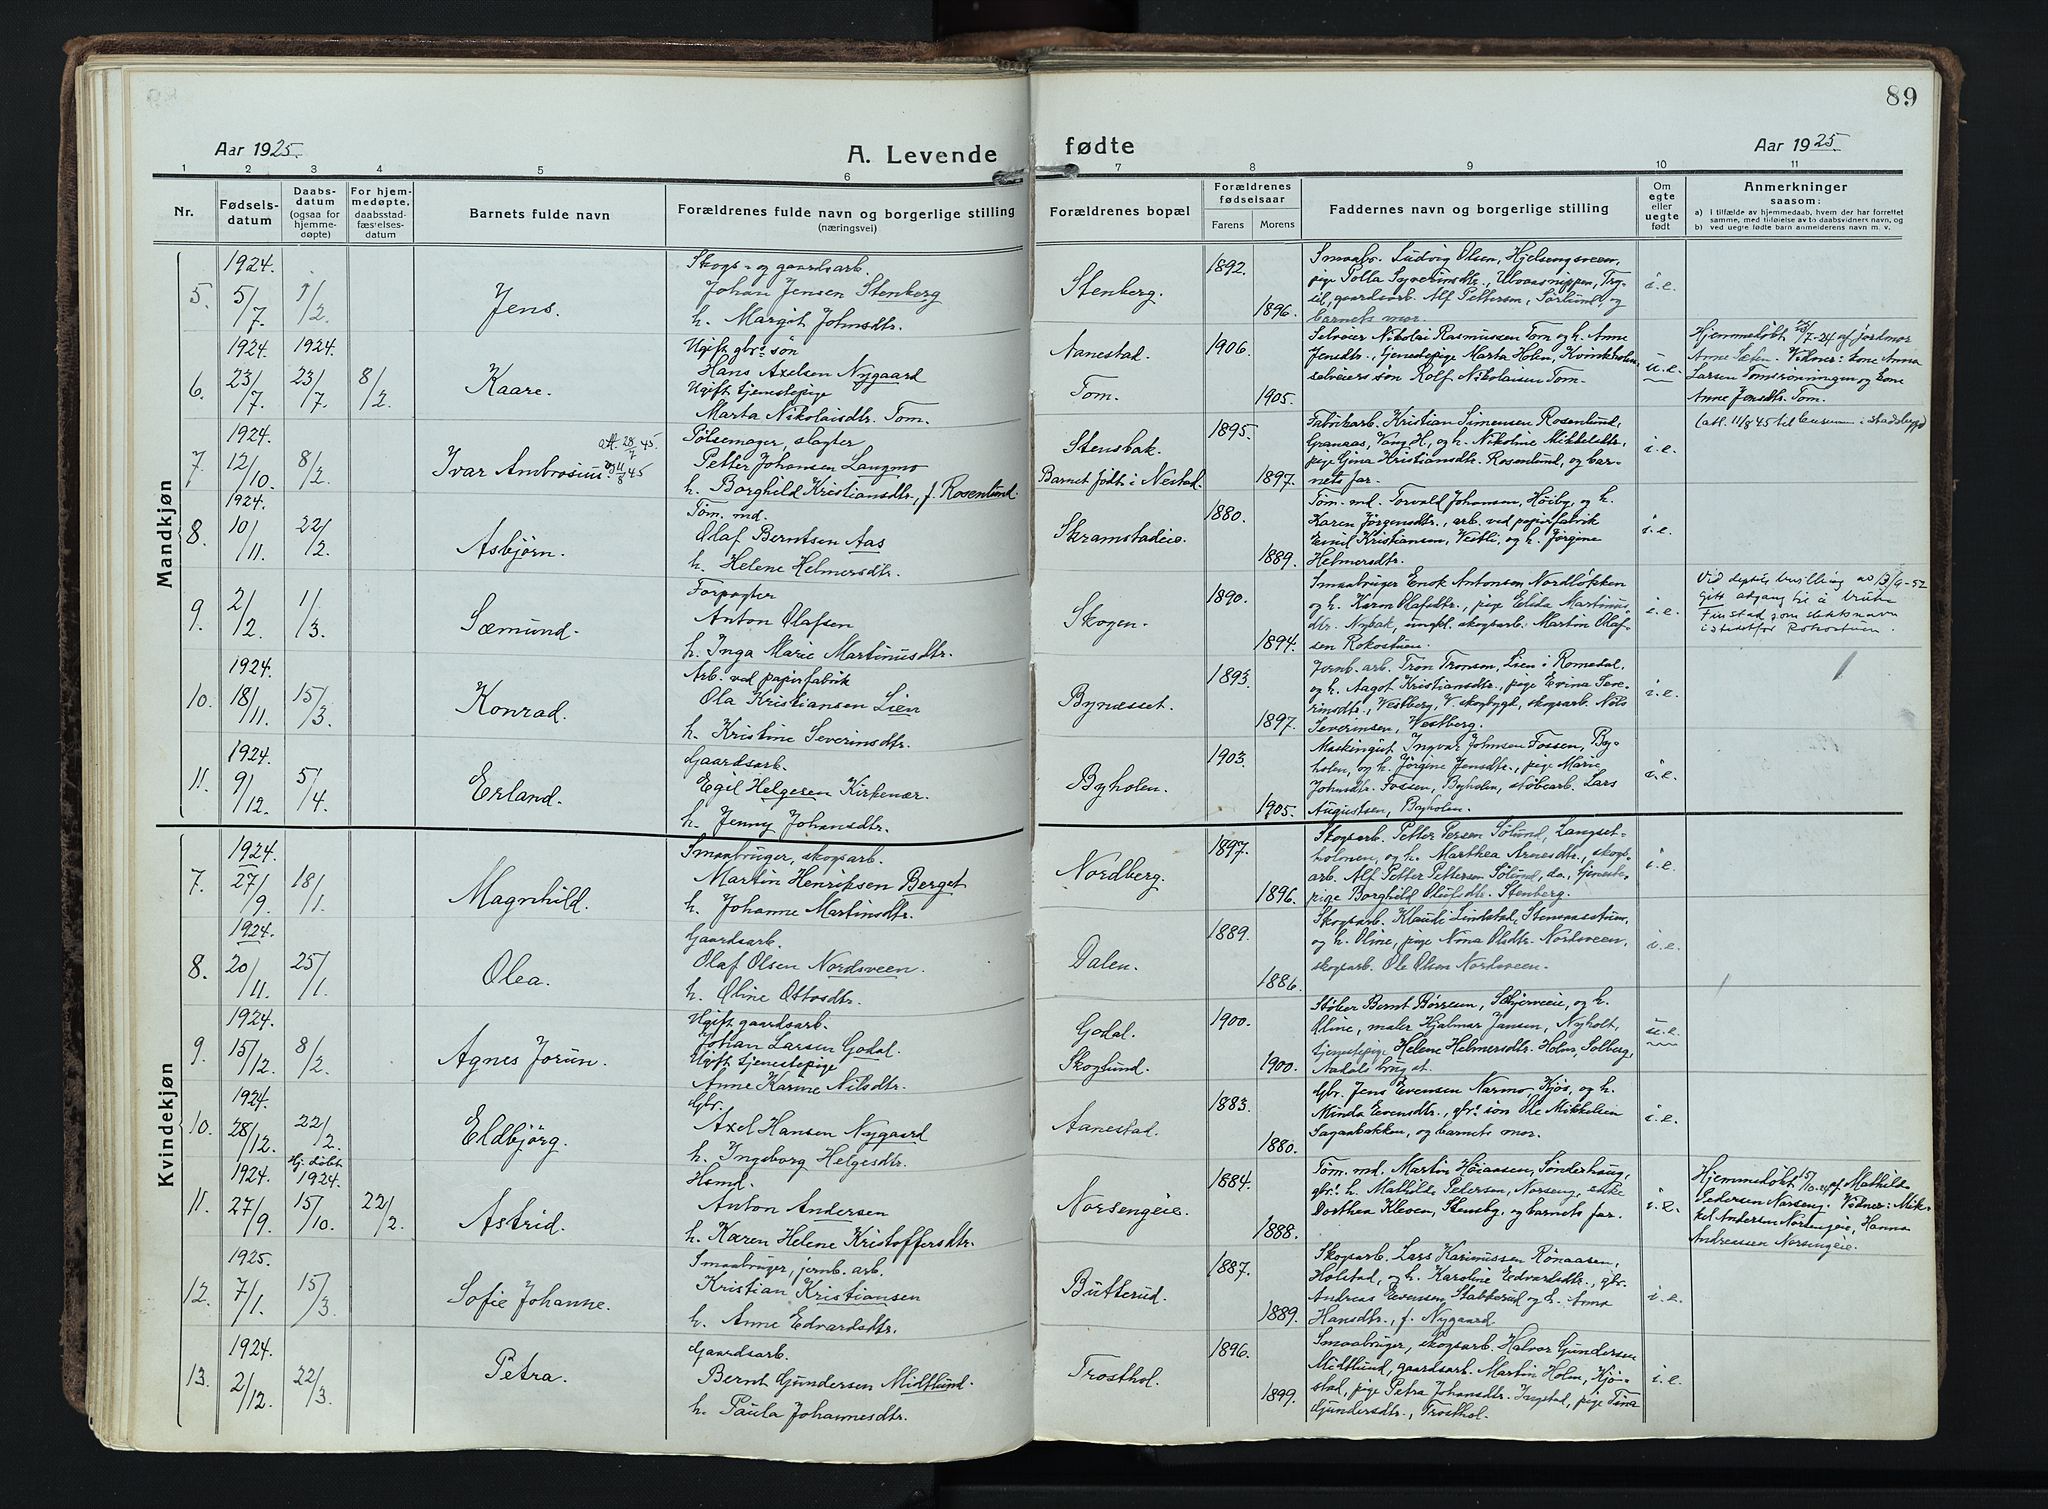 89
Aar 1925.
A. Levende fødte
Aar 1925.
1 2 3 4 5 6 7 8 9 10 11
Nr.
Fødsels-
datum
Daabs-
datum
(ogsaa for
hjemme-
døpte)
For hjem-
medøpte,
daabsstad-
fæstelses-
datum
Barnets fulde navn
Forældrenes fulde navn og borgerlige stilling
(næringsvei)
Forældrenes bopæl
Forældrenes
fødselsaar
Farens Morens
Faddernes navn og borgerlige stilling
Om
egte
eller
uegte
født
Anmerkninger
saasom:
a) i tilfælde av hjemmedaab, hvem der har forrettet
samme, med tilføielse av to daabsvidners navn, og
b) ved uegte fødte barn anmelderens navn m. v.
Mandkjøn
5. 1924. 5/7. 1/2. Jens.
Skogs- og gaardsarb.
Johan Jensen Stenberg
h. Margit Johnsdtr.
Stenberg. 1892. 1896.
Smaabr. Ludvig Olsen, Hjelsengsveen,
pige Tolla Syverinsdtr., Ulvaasnippen, Try-
sil, gaardsarb. Alf Pettersen, Sørlund, og
barnets mor.
i.e.
6. 1924. 23/7. 1924. 23/7. 8/2. Kaare.
Ugift gbr.s søn
Hans Axelsen Nygaard
Ugift tjenestepige
Marta Nikolaisdtr. Tom.
Aanestad.
Tom.
1906. 1905.
Selveier Nikolai Rasmussen Tom og h. Anne
Jensdtr., tjenestepige Marta Holen, Kvinkholen,
selveiers søn Rolf Nikolaisen Tom.
u.e.
Hjemmedøbt 23/7-24 af jordmor
Anne Sæten. Vidner: Enne Anna
Larsen Tomsrønningen og Enne
Anne Jensdtr. Tom.
7. 1924. 12/10. 8/2. Ivar Ambrosius.
att. 28/7 45.
11/8 45
Pølsemager, slagter
Petter Johansen Langmo
h. Borghild Kristiansdtr., f. Rosenlund.
Stensbak.
Barnet født i Nestad.
1895. 1897.
Fabrikarb. Kristian Simensen Rosenlund,
Granaas, Vang H., og h. Nikoline Mikkelsdtr.,
pige Gina Kristiansdtr. Rosenlund, og bar-
nets far.
i.e.
(att. 11/8 45 til
8. 1924. 10/11. 22/2. Asbjørn.
Tøm. md.
Olaf Berntsen Aas
h. Helene Helmersdtr.
Skramstadeie. 1880. 1889.
Tøm. md. Torvald Johansen, Høiby, og h.
Karen Jørgensdtr., arb. ved papirfabrik
Emil Kristiansen, Vestli, og h. Jørgine
Helmersdtr.
i.e.
9. 2/2. 1/3. Sæmund.
Forpagter
Anton Olafsen
h. Inga Marie Martinusdtr.
Skogen. 1890. 1894.
Smaabruger Enok Antonsen Nordløkken
og h. Karen Olafsdtr., pige Elida Martinus-
dtr. Nybak, ungkl. skogsarb. Martin Olaf-
sen Rokostuen.
i.e.
Vid deptets bevilling av 13/9-52
gitt adgang til å bruke
Finstad som slektsnavn
istedetfor Rokostuen.
10. 1924. 18/11. 15/3. Konrad.
Arb. ved papirfabrik
Ola Kristiansen Lien
h. Kristine Severinsdtr.
Bynæsset. 1893. 1897.
Jernb. arb. Tron Tronsen, Lien i Romedal,
og h. Aagot Kristiansdtr., pige Evina Seve-
rinsdtr., Vestberg, V. skogbygd, skogsarb. Nils
Severinsen, Vestberg.
i.e.
11. 1924. 9/12. 5/4. Erland.
Gaardsarb.
Egil Helgesen Kirkenær.
h. Jenny Johansdtr.
Byholen. 1903. 1905.
Maskingut Ingvar Johnsen Fossen, By-
holen, og h. Jørgine Jensdtr., pige Marie
Johnsdtr. Fossen, Byholen, støbearb. Lars
Augustsen, Byholen.
i.e.
Kvindekjøn
7. 1924. 27/9. 18/1. Magnhild.
Smaabruger, skogsarb.
Martin Henriksen Berget
h. Johanne Martinsdtr.
Nordberg. 1897. 1896.
Skogsarb. Petter Persen Sølund, Langset-
holmen, og h. Marthea Arnesdtr., skogs-
arb. Alf Petter Pettersen Sølund, do., tjeneste-
pige Borghild Olufsdtr. Stenberg.
i.e.
8. 1924. 20/11. 25/1. Olea.
Gaardsarb.
Olaf Olsen Nordsveen.
h. Oline Ottosdtr.
Dalen. 1889. 1886.
Skogsarb. Klaudi Lindstad, Stenaasstuen,
og h. Oline, pige Nina Olsdtr. Nordsveen,
skogsarb. Ole Olsen Nordsveen.
i.e.
9. 1924. 15/12. 8/2. Agnes Jorun.
Ugift gaardsarb.
Johan Larsen Godal.
Ugift tjenestepige
Anne Karine Nilsdtr.
Godal.
Skoglund.
1900. 1900.
Støber Bernt Børresen, Skjerveeie, og h.
Oline, maler Hjalmar Jansen, Nyholt,
tjenestepige Helene Helmersdtr. Holm, Solberg,
Aadalsbruget.
u.e.
10. 1924. 28/12. 22/2. Eldbjørg.
Gbr.
Axel Hansen Nygaard
h. Ingeborg Helgesdtr.
Aanestad. 1883. 1880.
Gbr. Jens Evensen Narmo, Kjøs, og h.
Minda Evensdtr., gbr.s søn Ole Mikkelsen
Sagaabakken, og barnets mor.
i.e.
11. 1924. 27/9. Hj. døbt 1924. 15/10. 22/2. Astrid.
Hsmd.
Anton Andersen
h. Karen Helene Kristoffersdtr.
Norsengeie. 1884. 1888.
Tøm. md. Martin Høiaasen, Sønderhaug,
gbr. h. Mathilde Pedersen, Norseng, enke
Dorthea Kleven, Stensby, og barnets far.
i.e.
Hjemmedøbt 15/10-24 af Mathilde
Pedersen Norseng. Vidner: Mik-
kel Andersen Norsengeie, Hanna
Andreassen Norsengeie.
12. 1925. 7/1. 15/3. Sofie Johanne.
Smaabruger, jernb. arb.
Kristian Kristiansen
h. Anne Edvardsdtr.
Butterud. 1887. 1889.
Skogsarb. Lars Karinussen Rønaasen,
Holstad, og h. Karoline Edvardsdtr., gbr.
Andreas Evensen Stabberud og h. Anna
Hansdtr., f. Nygaard.
i.e.
13. 1924. 2/12. 22/3. Petra.
Gaardsarb.
Bernt Gundersen Midtlund.
h. Paula Johannesdtr.
Trosthol. 1896. 1899.
Smaabruger, skogsarb. Halvor Gundersen
Midtlund, gaardsarb. Martin Holm, Kjø-
stad, pige Petra Johansdtr. Jagstad, pige Tina
Gundersdtr., Trosthol.
i.e.